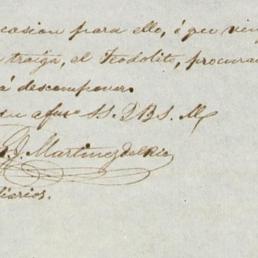 ocasion para ello, ó que ven
traiga, el Teodolito, procuran
á descomponer.
su afmo SS. Q B S. M
J. Martinez del Rio
diarios.